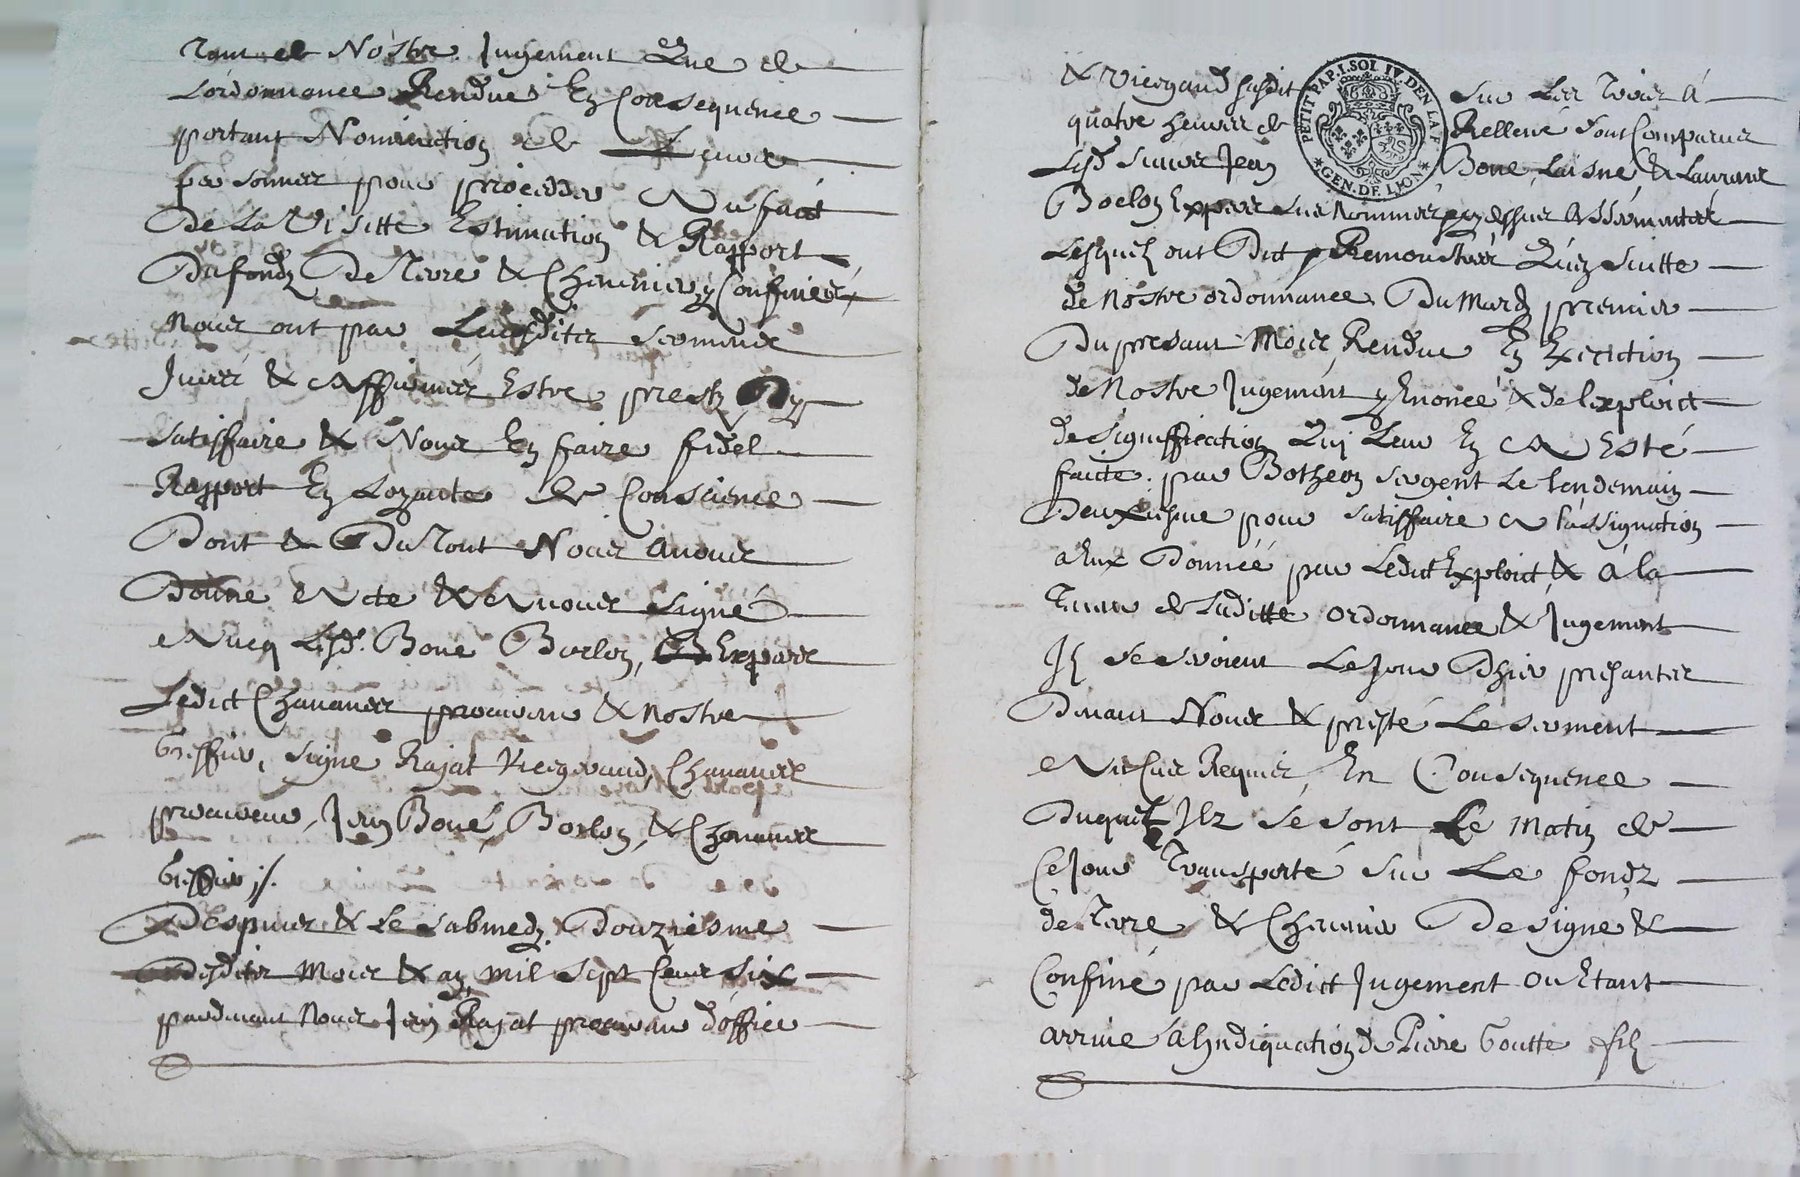 tant de Nostre Jugement Que de
Lordonnance Rendue En Consequence
portant Nomination de
personnes pour proceder Au faict
De La Visitte Estimation & Rapport
Du fondz De Terre & Chenevier y Confinéz,
Nous ont par Leursditz serments
Jurés & Affirmés Estre prestz D'y
satisffaire & Nous En faire fidel
Rapport En Loyaute de Conscience
Dont & Du Tout Nous avons
Donné Acte & Avons signé
Avecq Lesd. Boué Borlon, Expars
Ledict Chavanes procureur & Nostre
Greffier, signe Rajat Viergeraud, Chavanes
procureur, Jean Boué, Borlon, & Chavanes
Greffier ./.
Despuis & Le sabmedy Douziesme
Desditz Mois & an mil sept Cens six
pardevant Nous Jean Rajat procureur d'office
& Viergeraud susdit sur Les Trois à
quatre heures de Rellevé sont Comparus
Lesd sieurs Jean Boué, Laisné & Laurant
Borlon Expars sus Nommes par dessus Assermentés
Lesquelz ont Dit & Remonstrés Qu'en suitte
de Nostre ordonnance Du Mardy premier
Du presant Mois Rendue En Execution
de Nostre Jugement y Enoncé & de lexploict
de signiffication Qui Leur En A Esté
faicte par Botheon sergent Le lendemain
Deuxiesme pour satisffaire A lassignation
a Eux Donnéé par Ledict Exploict & à la
Teneur de Laditte ordonnance & Jugement
Ilz se seroient Le Jour Dhier presantes
Devant Nous & presté Le serment
Au Cas Requis, En Consequence
Duquel Ilz se sont Le Matin de
Ce Jour Transporté sur Le fondz
de Terre & Chenevier Designé &
Confiné par Ledict Jugement ou Etant
arrivé a lindiquation de Pierre Goutte filz
PETIT PAP. 1. SOL IV. DEN LA F.
GEN. DE LYON